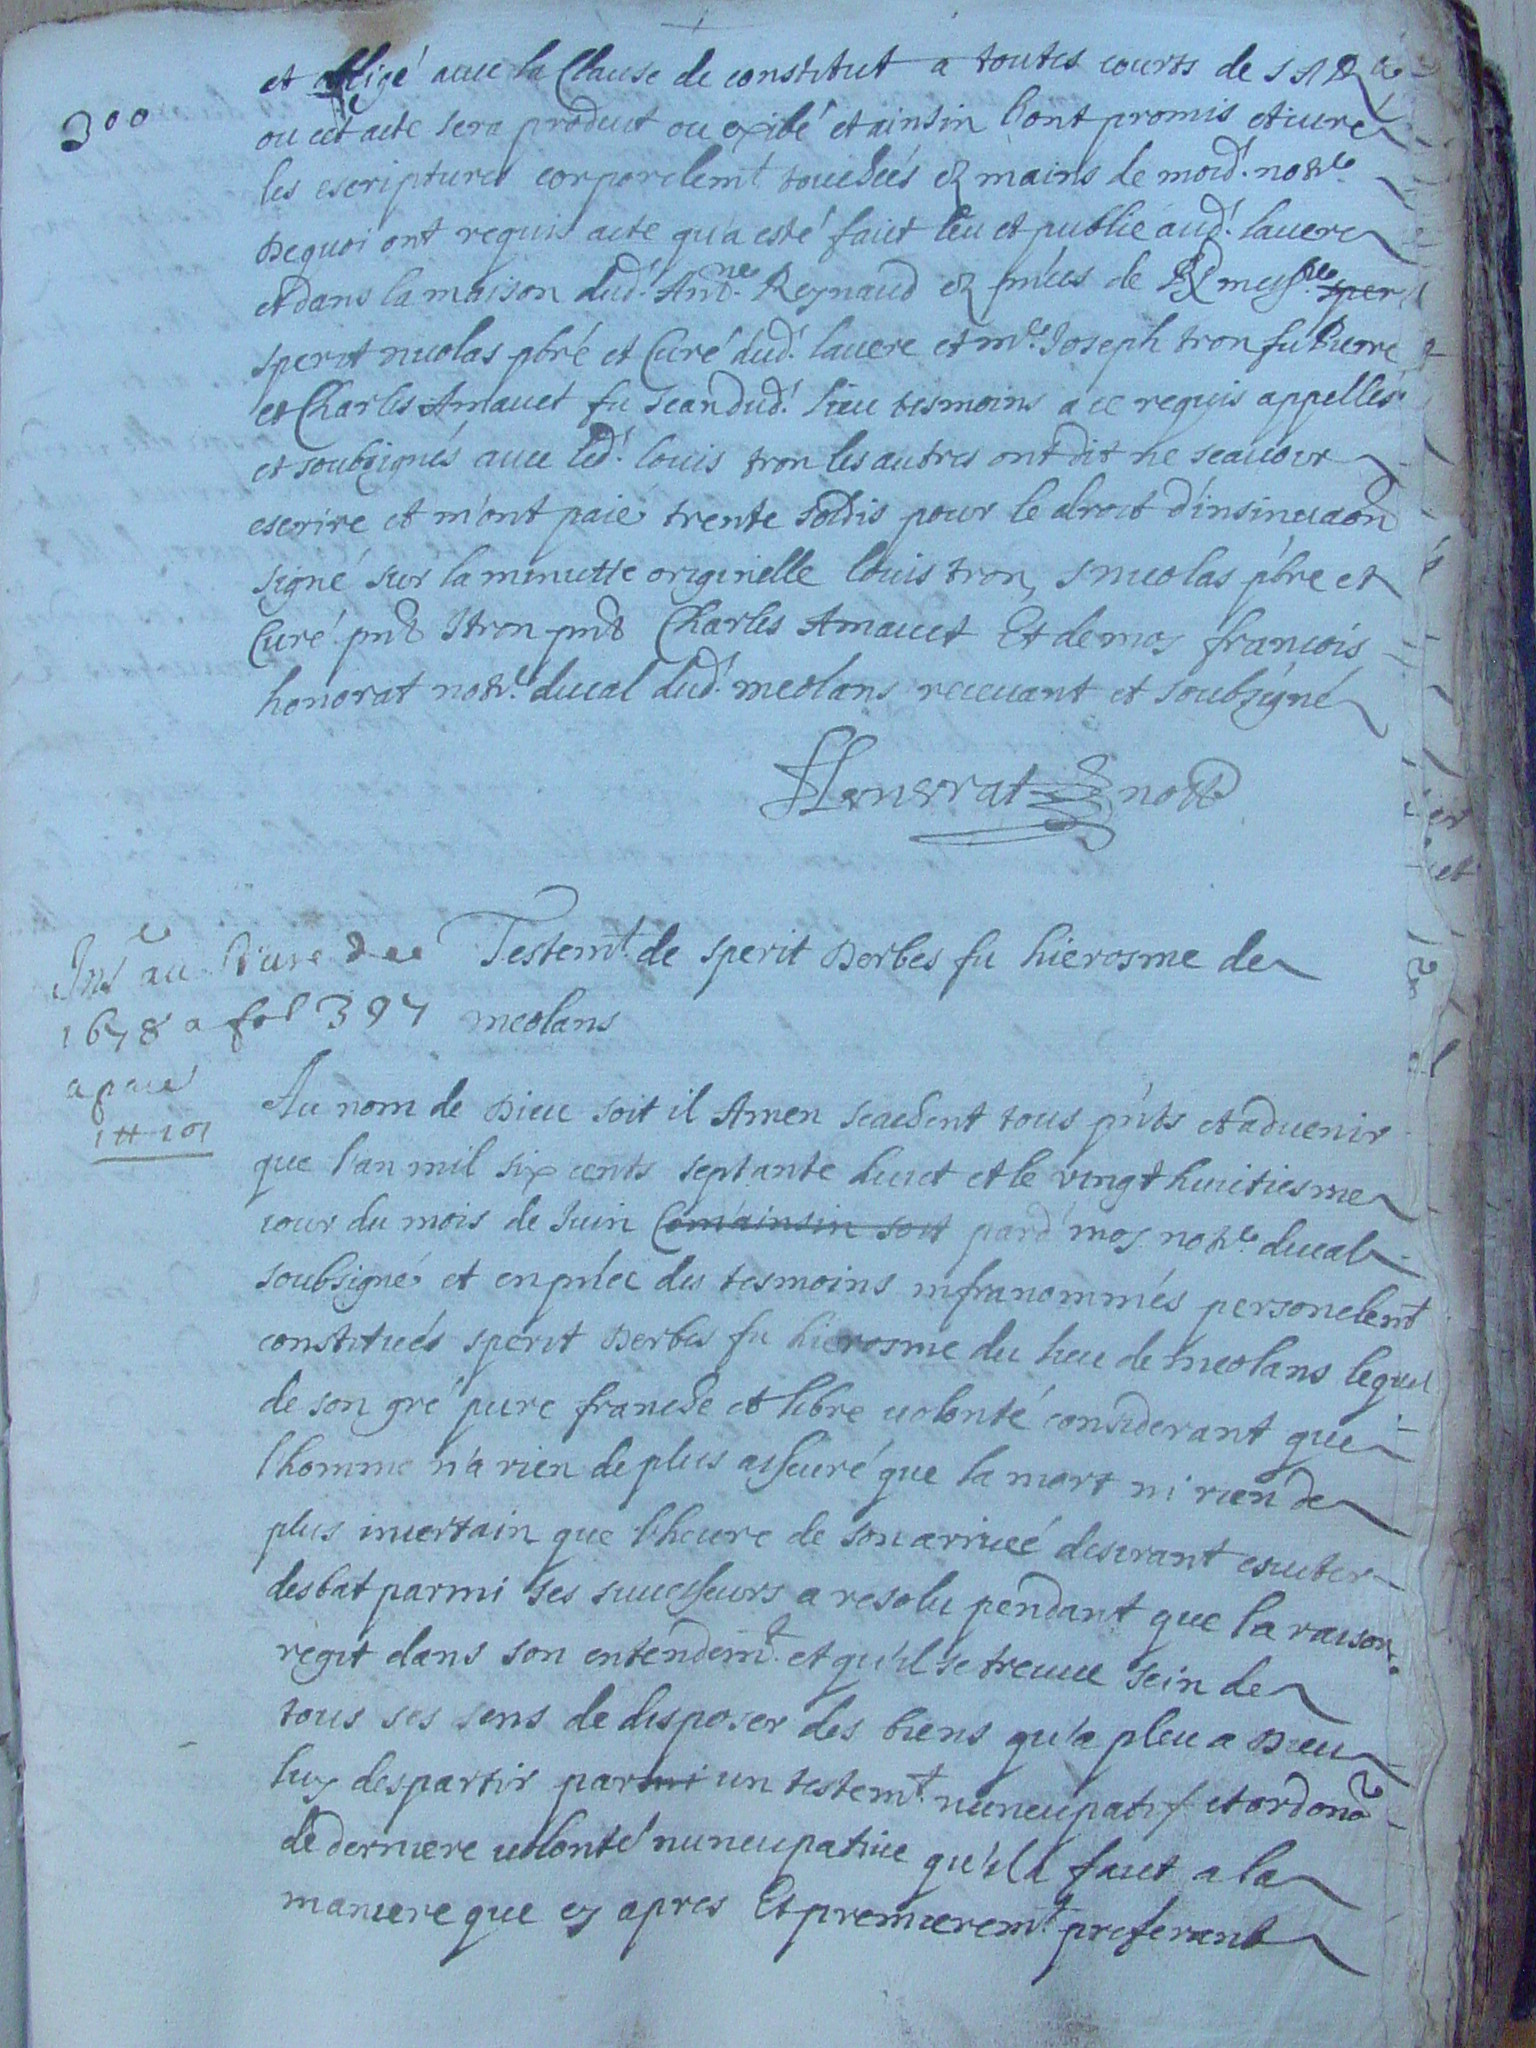 300
et obligé auec la Clause de constitut a toutes courts de s s R
ou cet acte sera produit ou exibé et ainsin l'ont promis et iuré
les escriptures corporelemt touchées ez mains de moid. notre
Dequoi ont requis acte qu'a esté faict leu et publié aud. lauere
et dans la maison dud. Antne Reynaud ez pñces de messre sper
sperit nicolas pbrê et Curé dud. lauere et me Joseph tron fu Pierre
et Charles Arnauct fu Jean dud. lieu tesmoins a ce requis appellés
et soubsignés auec led. louis tron les autres ont dit ne scauoir
escrire et m'ont paié trente soldis pour le droit d'insinuaon
signé sur la minutte originelle louis tron, s nicolas pbre et
Curé pñt J tron pñt Charles Arnauct Et de moy françois
honorat notre ducal dud. meolans receuant et soubsigné
Honnorat notre
Insle au liure Dee
1678 a fol 397
a paié
1 # 10 s
Testemt de sperit Derbes fu hierosme de
meolans
Au nom de Dieu soit il Amen scachent tous pñts et aduenir
que l'an mil six cents septante huict et le vingt huictiesme
iour du mois de Juin Com'ainsin soit pard. moy notre ducal
soubsigné et en pñce des tesmoins infranommés personelemt
constitués sperit Derbes fu hierosme du lieu de meolans lequel
de son gré pure franche et libre uolonté considerant que
l'homme n'a rien de plus asseuré que la mort ni rien de
plus incertain que l'heure de son arriueé desirant esuiter
desbat parmi ses successeurs a resolu pendant que la raison
regit dans son entendemt et qu'il se treuue sein de
tous ses sens de disposer des biens qu'a pleu a Dieu
luy despartir parmi un testemt nuncupatif et ordonce
de derniere uolonté nuncupatiue qu'il a faict a la
maniere que cy apres Et premieremt preferant